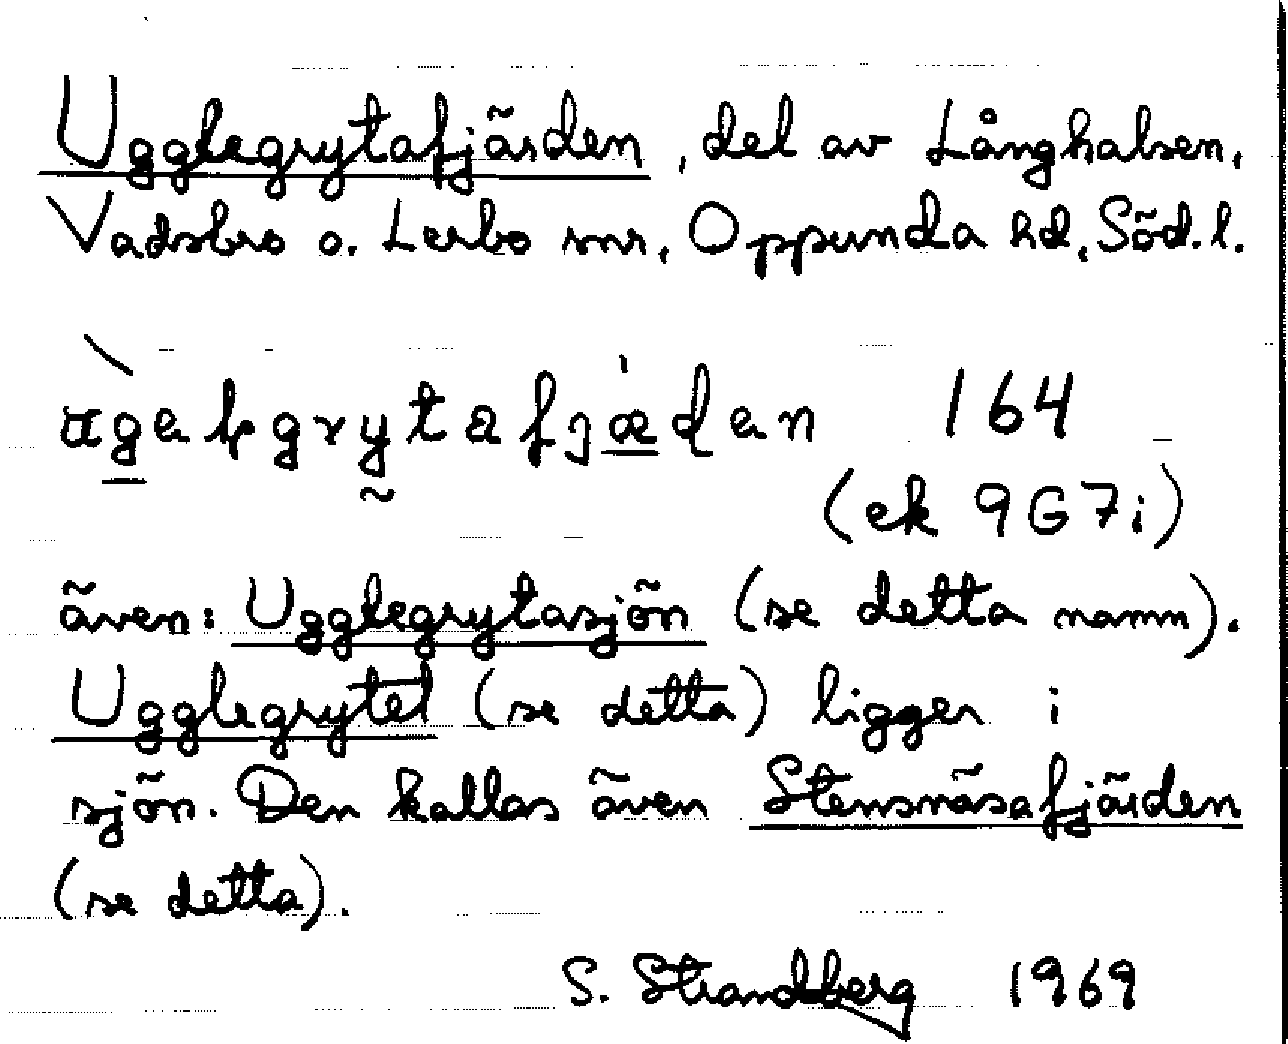 Ugglegrytafjärden, del av Långhalsen,
Vadsbro o. Lerbo snr, Oppunda hd, Söd.l.
164
(ek 9G7i)
även: Ugglegrytasjön (se detta namn).
Ugglegrytet (se detta) ligger i
sjön. Den kallas även Stensnäsafjärden
(se detta).
S. Strandberg 1969